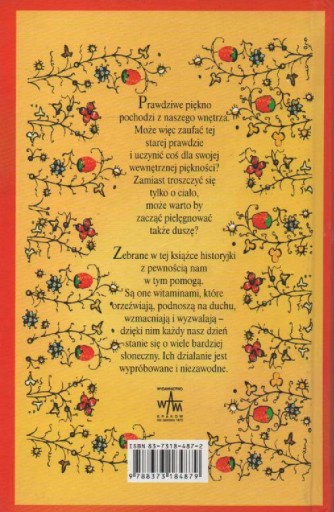 Prawdziwe piękno
pochodzi z naszego wnętrza.
Może więc zaufać tej
starej prawdzie
i uczynić coś dla swojej
wewnętrznej piękności?
Zamiast troszczyć się
tylko o ciało,
może warto by
zacząć pielęgnować
także duszę?
Zebrane w tej książce historyjki
z pewnością nam
w tym pomogą.
Są one witaminami, które
orzeźwiają, podnoszą na duchu,
wzmacniają i wyzwalają –
dzięki nim każdy nasz dzień
stanie się o wiele bardziej
słoneczny. Ich działanie jest
wypróbowane i niezawodne.
WYDAWNICTWO
WAM
KRAKÓW
ISBN 83-7318-487-2
9 788373 184879